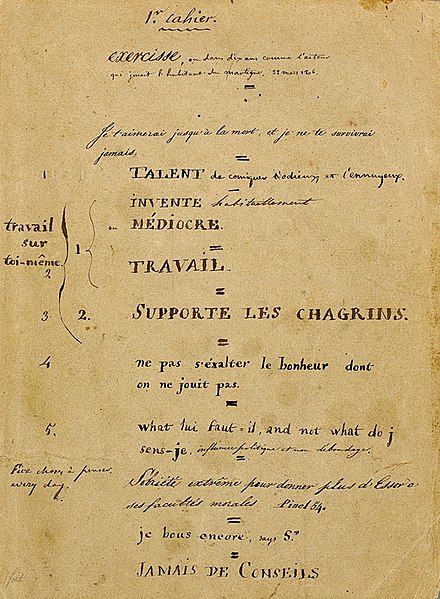 1er cahier.
exercisse, ou dans dix ans comme l'acteur
qui jouait l'habitant du 22 mars 1806.
Je t'aimerai jusqu'à la mort, et je ne te survivrai
jamais.
1 TALENT de comiques odieux, et l'ennuyeux.
INVENTE habituellement
ou MÉDIOCRE.
travail
sur
toi-même.
1
2
TRAVAIL.
3 2. SUPPORTE LES CHAGRINS.
4 ne pas s'éxalter le bonheur dont
on ne jouit pas.
5. what lui faut-il, and not what do j
sens-je, influence politique et non
Five chery à penser
every day.
Sobriété extrême pour donner plus d'Essor à
ses facultés morales. Pinel 54.
je bous encore, says Sr
JAMAIS DE CONSEILS